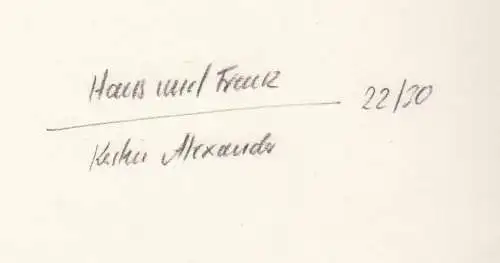 Hans und Frank 22/30
Kerstin Alexander